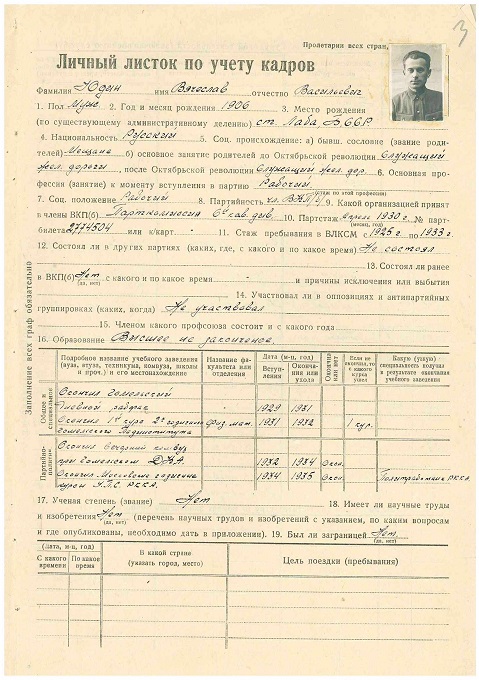 3
Пролетарии всех стран,
Личный листок по учету кадров
Фамилия Юдин имя Вячеслав отчество Васильевич
1. Пол Муж. 2. Год и месяц рождения 1906 3. Место рождения
(по существующему административному делению) ст. Лаба, БССР
4. Национальность Русский 5. Соц. происхождение: а) бывш. сословие (звание роди-
телей) Мещане б) основное занятие родителей до Октябрьской революции Служащий
жел. дороги, после Октябрьской революции Служащий жел. дор. 6. Основная про-
фессия (занятие) к моменту вступления в партию Рабочий
(стаж по этой профессии)
7. Соц. положение Рабочий 8. Партийность чл. ВКП(б) 9. Какой организацией принят
в члены ВКП(б) Парткомиссия 6й кав. див. 10. Партстаж Апрель 1930 г. № парт-
(месяц, год)
билета 2774504 или к/карт. 11. Стаж пребывания в ВЛКСМ с 1925 г. по 1933 г.
12. Состоял ли в других партиях (каких, где, с какого и по какое время) Не состоял
13. Состоял ли ранее
в ВКП(б) Нет с какого и по какое время и причины исключения или выбытия
(да, нет)
14. Участвовал ли в оппозициях и антипартийных
группировках (каких, когда) Не участвовал
15. Членом какого профсоюза состоит и с какого года
16. Образование Высшее не законченое.
Заполнение всех граф обязательно
Подробное название учебного заведения (вуза, втуза, техникума, комвуза, школы и проч.) и его местонахождение
Название факультета или отделения
Дата (м-ц, год)
Вступления
Окончания или ухода
Окончил или нет
Если не окончил, то с какого курса ушел
Какую (узкую) специальность получил в результате окончания учебного заведения
Общее и специальное
Окончил Гомельский
рабфак 1929 1931
Окончил 1й курс 2х годичного физ. мат. 1931 1932 1 кур.
Гомельского Пединститута
Партийно-политич.
Окончил вечерний комвуз
при Гомельском ДКА. 1932 1934 Окон.
Окончил Московские годичные 1934 1935 Окон. Политработник РККА.
курсы РККА.
17. Ученая степень (звание) Нет 18. Имеет ли научные труды
и изобретения Нет (перечень научных трудов и изобретений с указанием, по каким вопросам
(да, нет)
и где опубликованы, необходимо дать в приложении). 19. Был ли заграницей Нет.
(да, нет)
(Дата, м-ц, год)
С какого времени
По какое время
В какой стране
(указать город, место)
Цель поездки (пребывания)